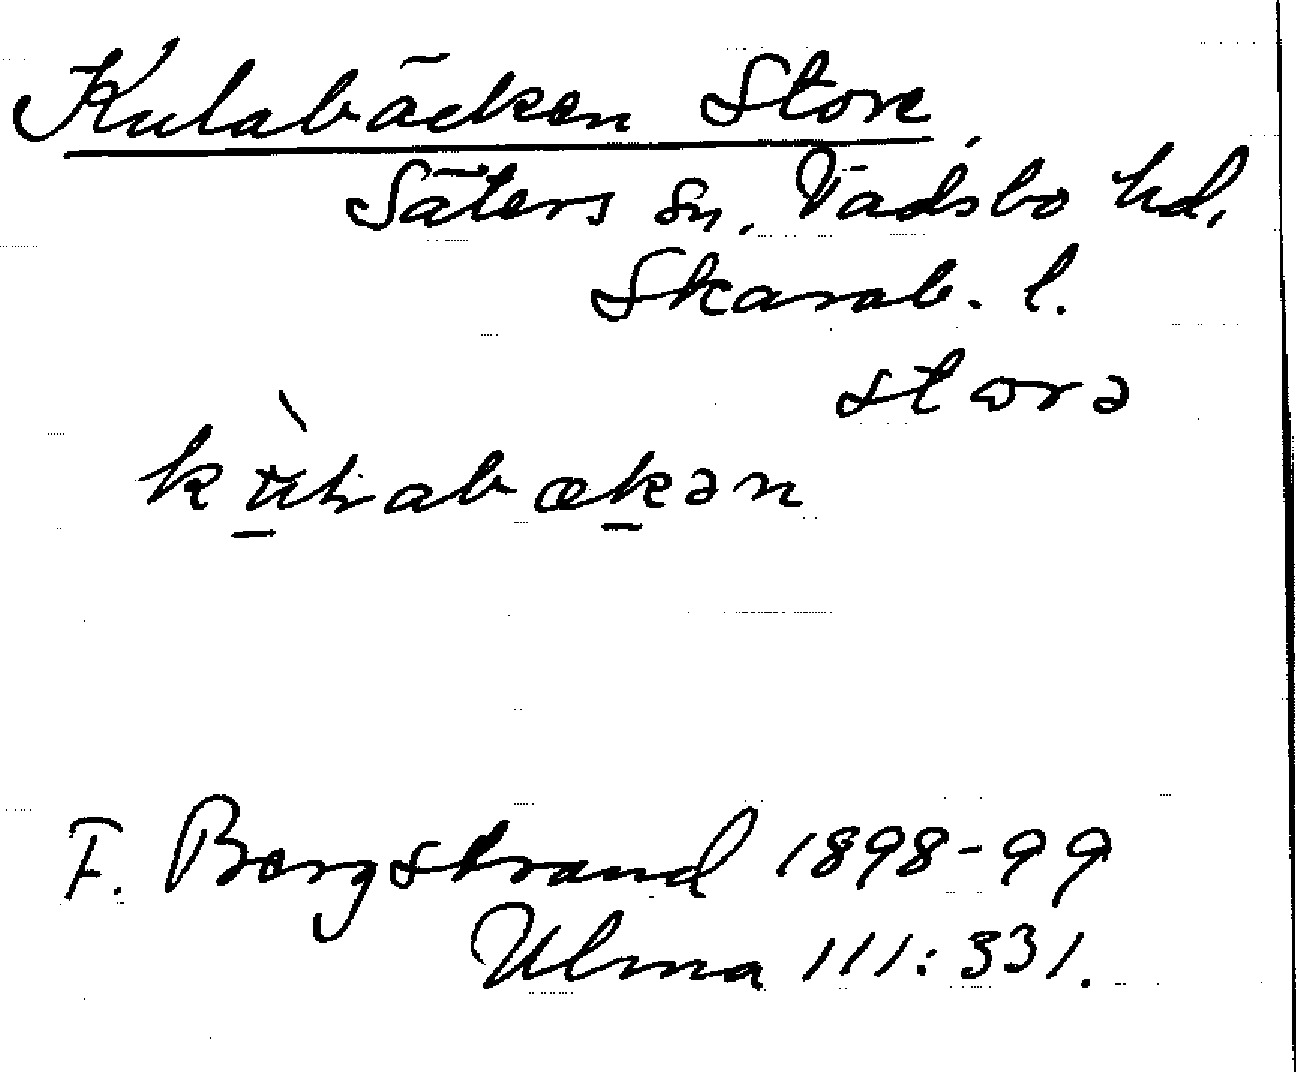 Kulabäcken Store
Säters sn. Vadsbo hd.
Skarab. l.
storə
abækən
F. Bergstrand 1898-99
Ulma 111:331.